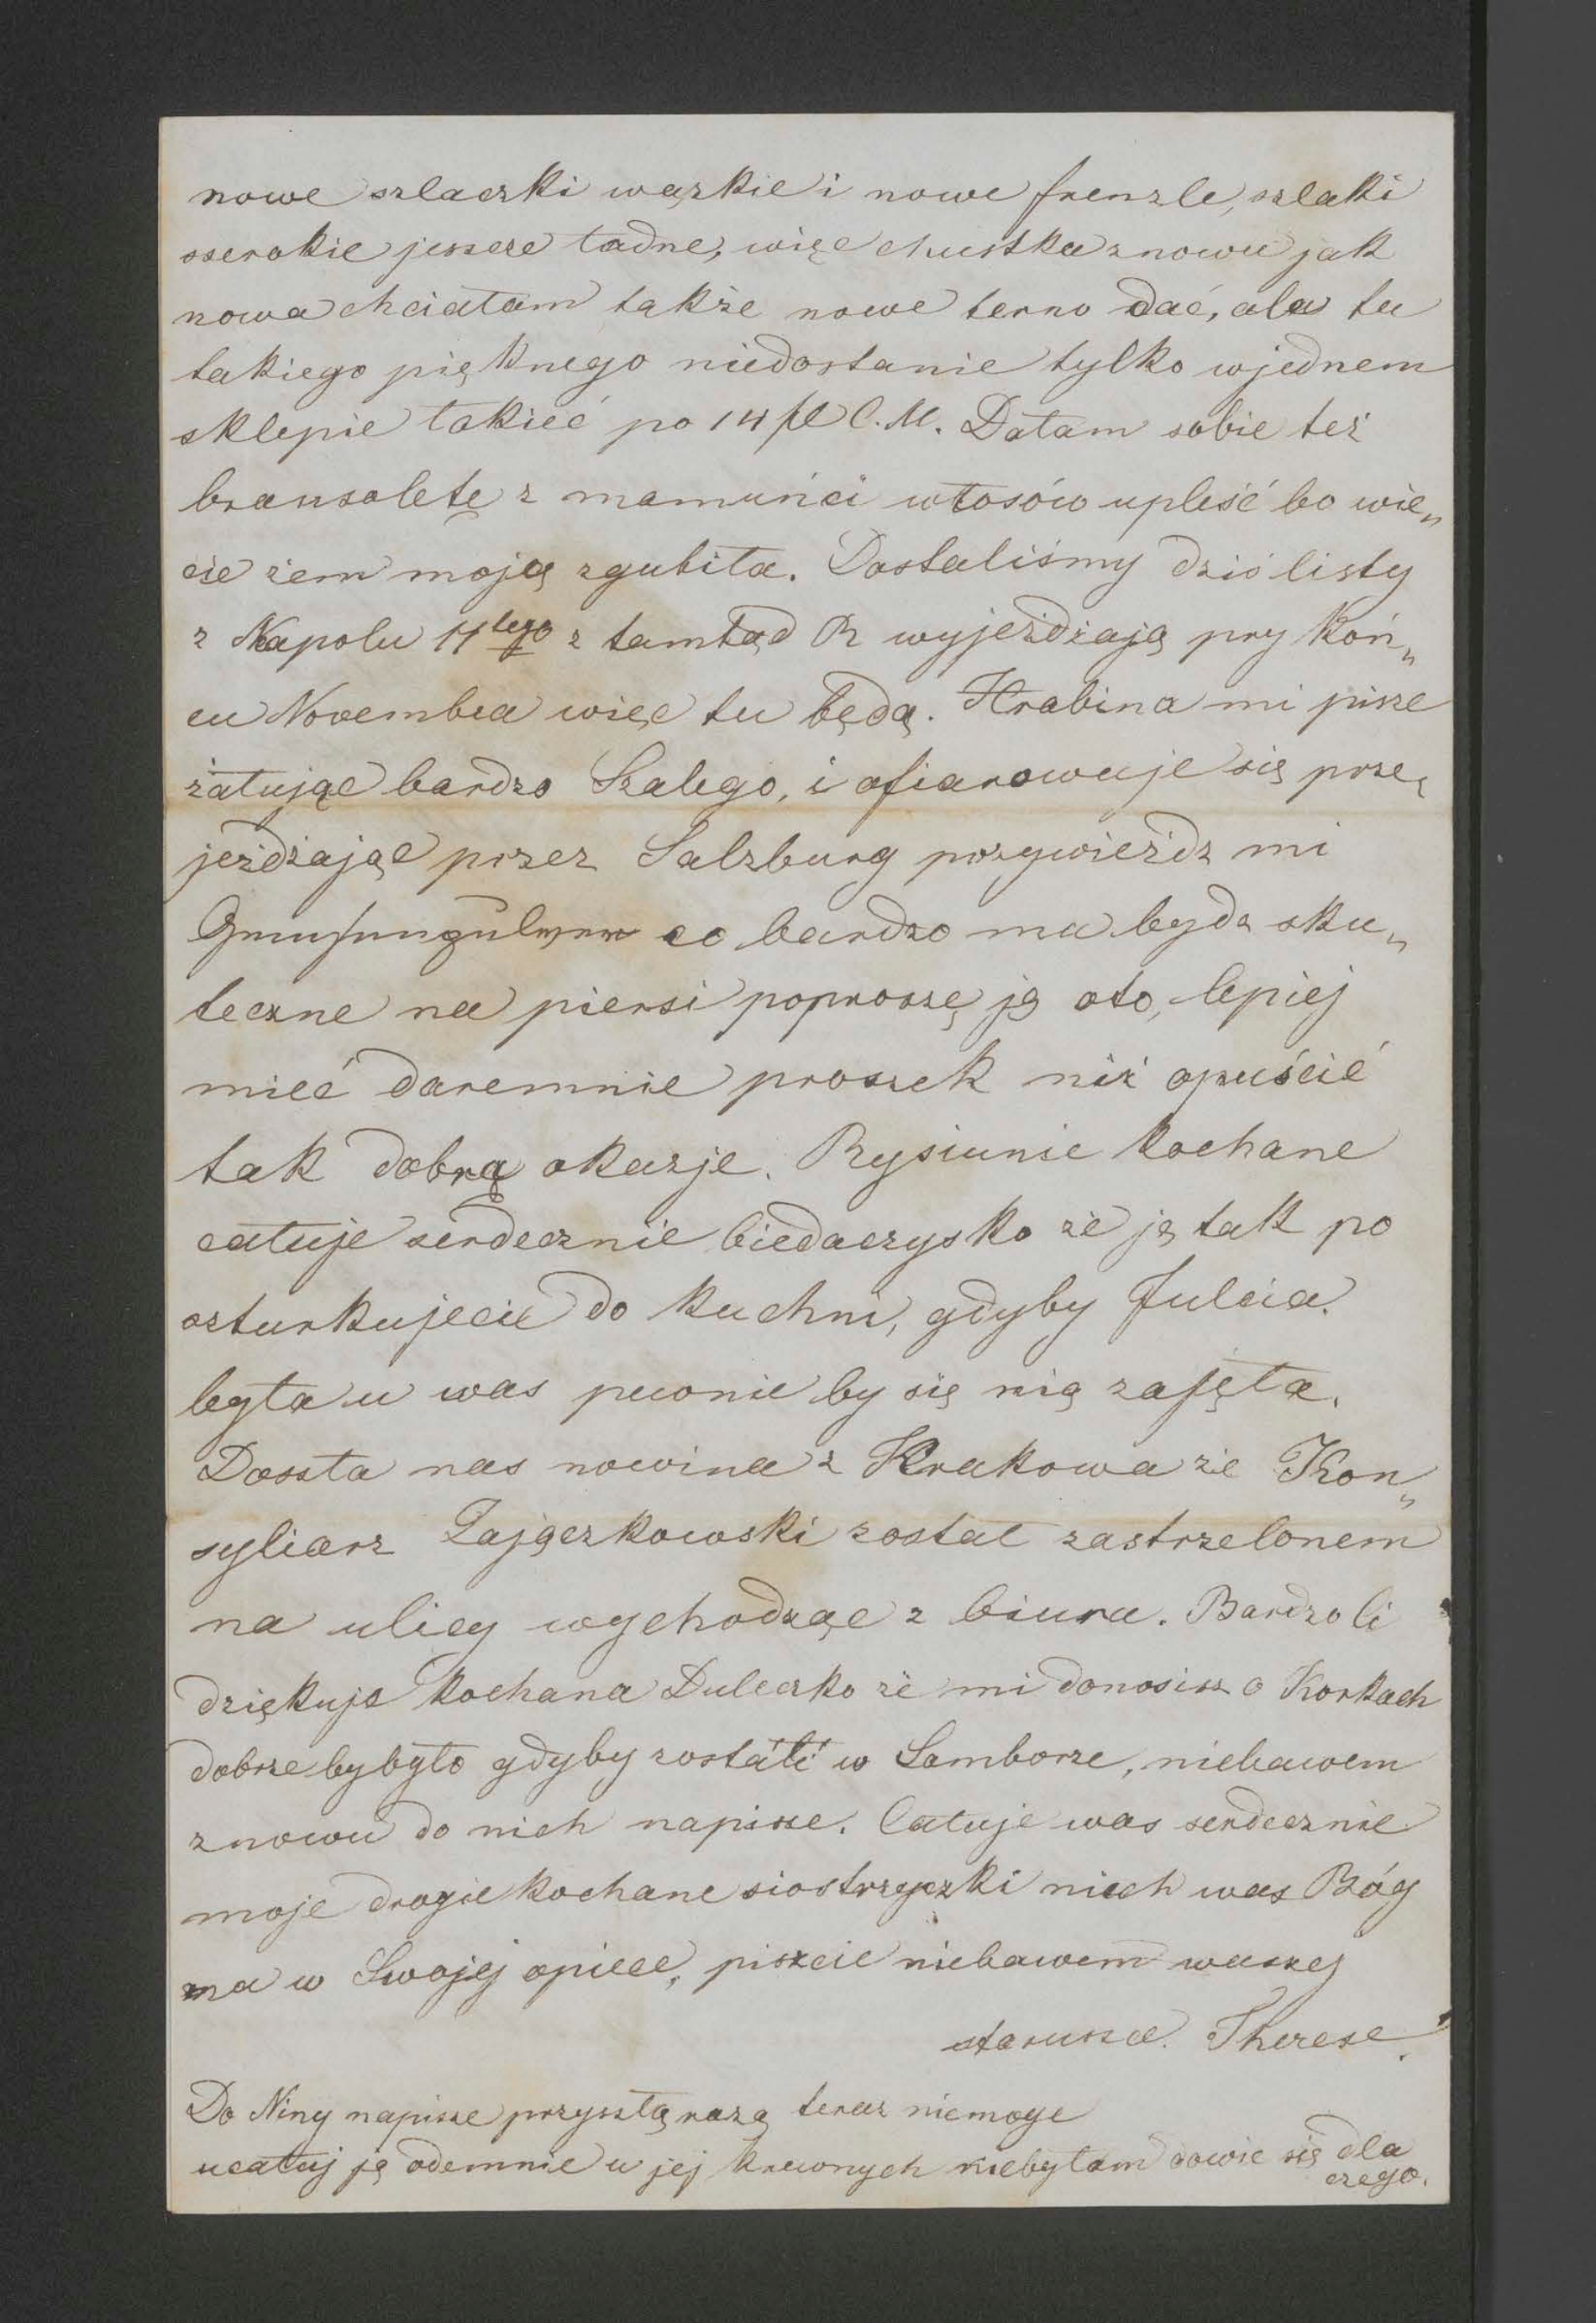 nowe szlaczki wązkie i nowe frenzle, szlaki
szerokie jeszcze ładne, więc chustka znowu jak
nowa chciałam także nowe terno dać, ale tu
takiego pięknego niedostanie tylko wjednem
sklepie takieć po 14 fl C.M. Dałam sobie też
bransoletę z mamuńci włosów upleść bo wie„
cie żem moją zgubiła. Dostaliśmy dziś listy
z Napolu 11tego z tamtąd R wyjeżdżają pry koń„
cu Novembra więc tu będą. Hrabina mi pisze
żałując bardzo Szalego, i ofiarowuje się prze„
jeżdżając przez Salzburg przywieźdz mi
co bardzo ma bydz sku„
teczne na piersi poproszę ją oto, lepiej
mieć daremnie proszek niż opuścić
tak dobrą okazje. Rysiunie kochane
całuje serdecznie biedaczysko że ją tak po
szturkujecie do kuchni, gdyby Julcia
była u was pewnie by się nią zajęła.
Doszła nas nowina z Krakowa że Kon„
syliarz Zajączkowski został zastrzelonem
na ulicy wychodząc z biura. Bardzo ci
dziękuje kochana Duleczko że mi donosisz o Korkach
dobrze by było gdyby zostáli w Samborze, niebawem
znowu do nich napisze. Całuje was serdecznie
moje drogie kochane siostrzyczki niech was Bóg
ma w Swojej opiece, piszcie niebawem waszej
starusze. Therese.
Do Niny napisze przyszłą razą teraz niemoge
ucałuj ją odemnie u jej krewnych niebyłam dowie się dla
czego.